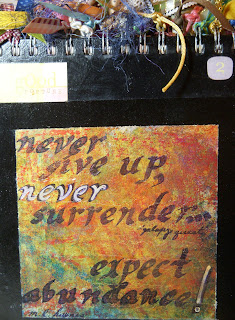 good
2
never
give up,
never
surrender...
"galaxy quest"
expect
abundance!